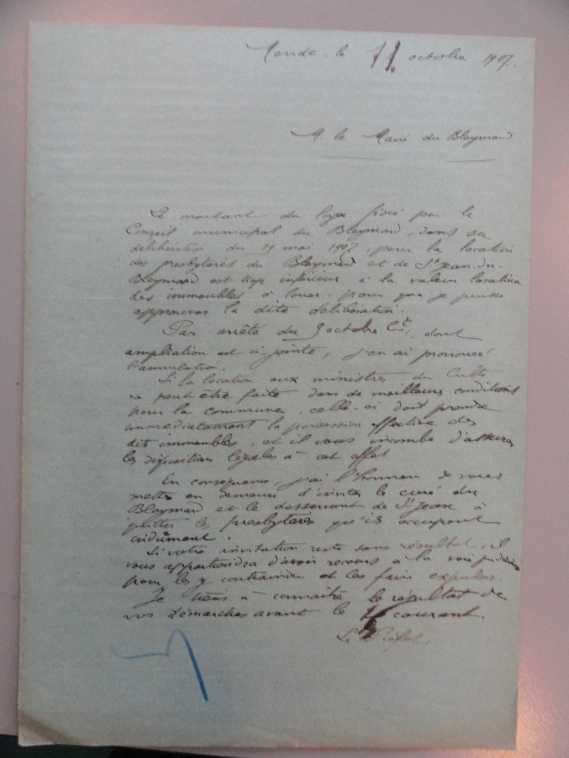 Mende, le 11 octobre 1907.
M le Maire du Bleymard
Le montant du loyer fixé par le
Conseil municipal du Bleymard, dans sa
délibération du 19 mai 1907, pour la location
des presbytères du Bleymard et de St Jean-du-
Bleymard est trop inférieur à la valeur locative
des immeubles à louer, pour que je puisse
approuver la dite délibération.
Par arrêté du 9 octobre Ct, dont
ampliation est ci-jointe, j'en ai prononcé
l'annulation.
Si la location aux ministres du Culte
ne peut être faite dans de meilleures conditions
pour la commune, celle-ci doit prendre
immédiatement la possession effective des
dits immeubles, et il vous incombe d'assurer
les dispositions légales à cet effet.
En conséquence, j'ai l'honneur de vous
mettre en demeure d'inviter le curé du
Bleymard et le desservant de St Jean à
quitter les presbytères qu'ils occupent
indûment.
Si votre invitation reste sans résultat, il
vous appartiendra d'avoir recours à la voie judiciaire
pour les y contraindre et les faire expulser.
Je tiens à connaître le résultat de
vos démarches avant le courant.
Le Préfet,